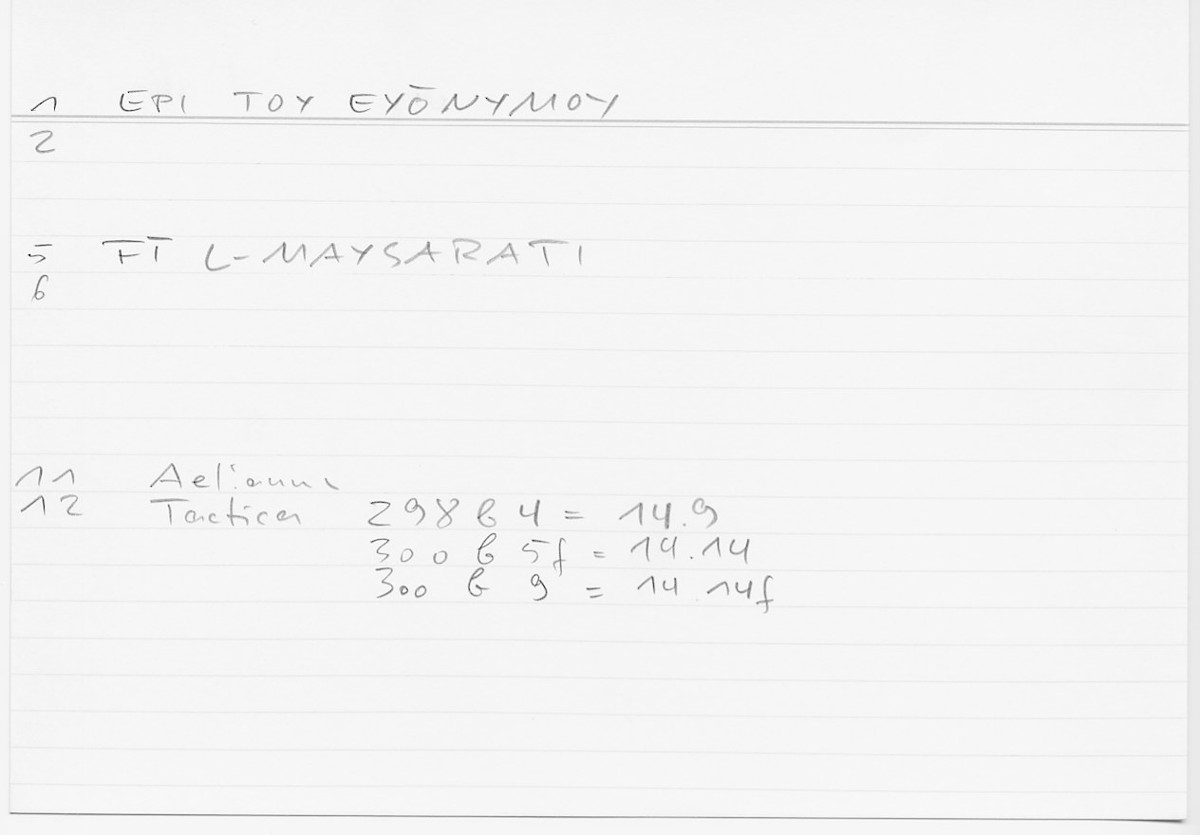 1 EPI TOY EYŌNYMOY
2
5 FĪ L-MAYSARATI
6
11 Aelianus
12 Tactica 298 b 4 = 14.9
300 b 5f = 14.14
300 b 9 = 14.14f